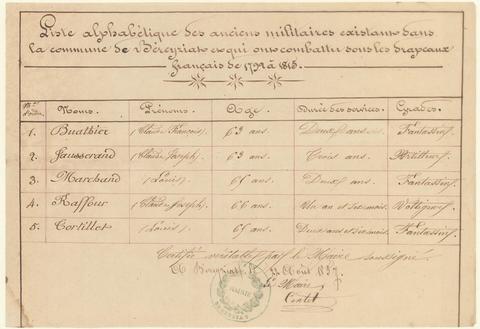 Liste alphabétique des anciens militaires existant dans
la commune de Béreyziat et qui ont combattu sous les drapeaux
français de 1792 à 1815.
Nos d'ordre Noms. Prénoms. Age. Durée des services. Grades.
1. Buathier (Claude François). 63 ans. Deux ans Fantassin.
2. Jausserand (Claude Joseph). 63 ans. Trois ans. Artilleur.
3. Marchand (Louis). 65 ans. Deux ans. Fantassin.
4. Raffour (Claude Joseph). 66 ans. Un an et six mois. Voltigeur.
5. Tortillet (Louis). 65 ans. Deux ans et six mois. Fantassin.
Certifié véritable par le Maire soussigné.
A Béreyziat le 22 Août 1857.
Le Maire
MAIRIE